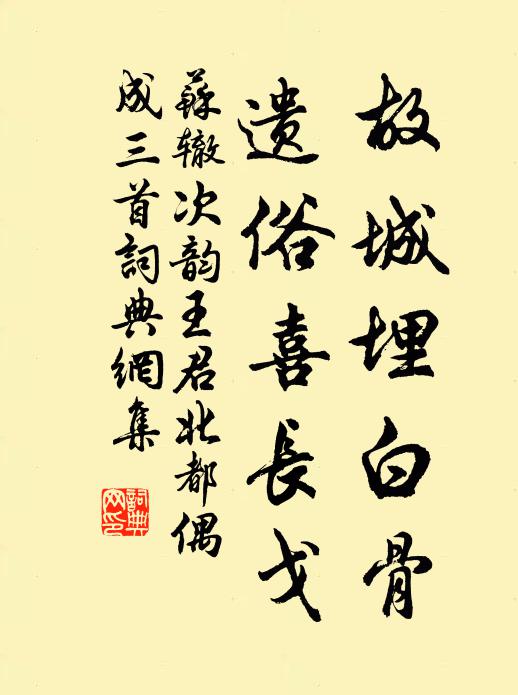 故城埋白骨
遗俗喜長戈
蘇辙次韵王君北都偶
成三首詞典網集
詞典
网印